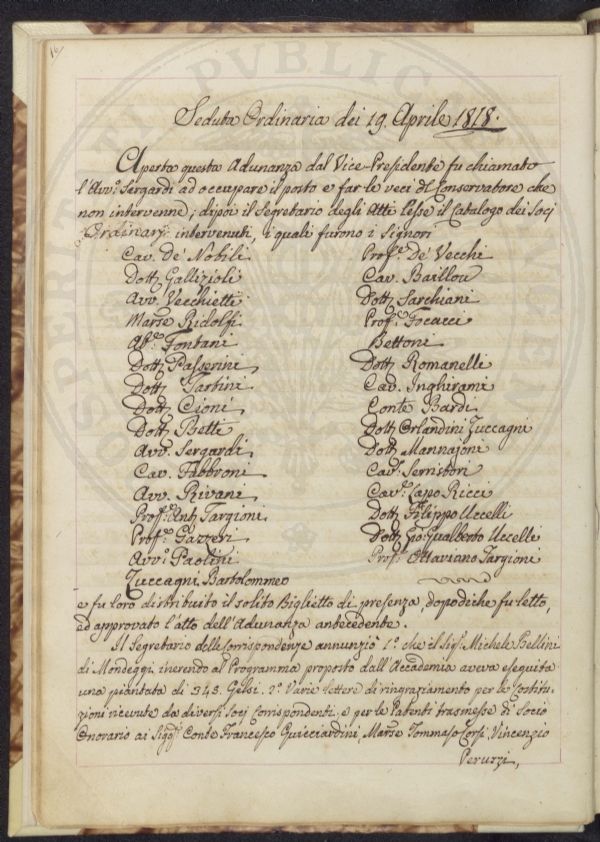 16/
Seduta Ordinaria dei 19. Aprile 1818.
Aperta questa Adunanza dal Vice-Presidente fu chiamato
l'Avvo. Sergardi ad occupare il posto e far le veci di Conservatore che
non intervenne; dipoi il Segretario degli Atti lesse il Catalogo dei Socj
Ordinarj intervenuti, i quali furono i Signori
Cav. de' Nobili
Dott. Gallizioli
Avv. Vecchietti
Marse. Ridolfi
Abe. Fontani
Dott. Passerini
Dott. Tartini
Dott. Cioni
Dott. Betti
Avv. Sergardi
Cav. Fabbroni
Avv. Rivani
Profe. Antо. Targioni
Profe. Gazzeri
Avvo. Paolini
Zuccagni Bartolommeo
Profe. de' Vecchi
Cav. Baillou
Dott. Sarchiani
Profe. Focacci
Bettoni
Dott. Romanelli
Cav. Inghirami
Conte Bardi
Dott. Orlandini Zuccagni
Dott. Mannajoni
Cave. Serristori
Cave. Lapo Ricci
Dott. Filippo Uccelli
Dott. Gio. Gualberto Uccelli
Profe. Ottaviano Targioni
e fu loro distribuito il solito Biglietto di presenza, dopodiche fu letto,
ed approvato l'atto dell'Adunanza antecedente.
Il Segretario delle Corrispondenze annunziò 1o. che il Sige. Michele Bellini
di Mondeggi inerendo al Programma proposto dall'Accademia aveva eseguita
una piantata di 345. Gelsi. 2o. Varie lettere di ringraziamento per le Costitu-
zioni ricevute da diversi Socj Corrispondenti, e per le Patenti trasmesse di Socio
Onorario ai Sigg. Conte Francesco Guicciardini, Marse. Tommaso Corsi, Vincenzio
Peruzzi,